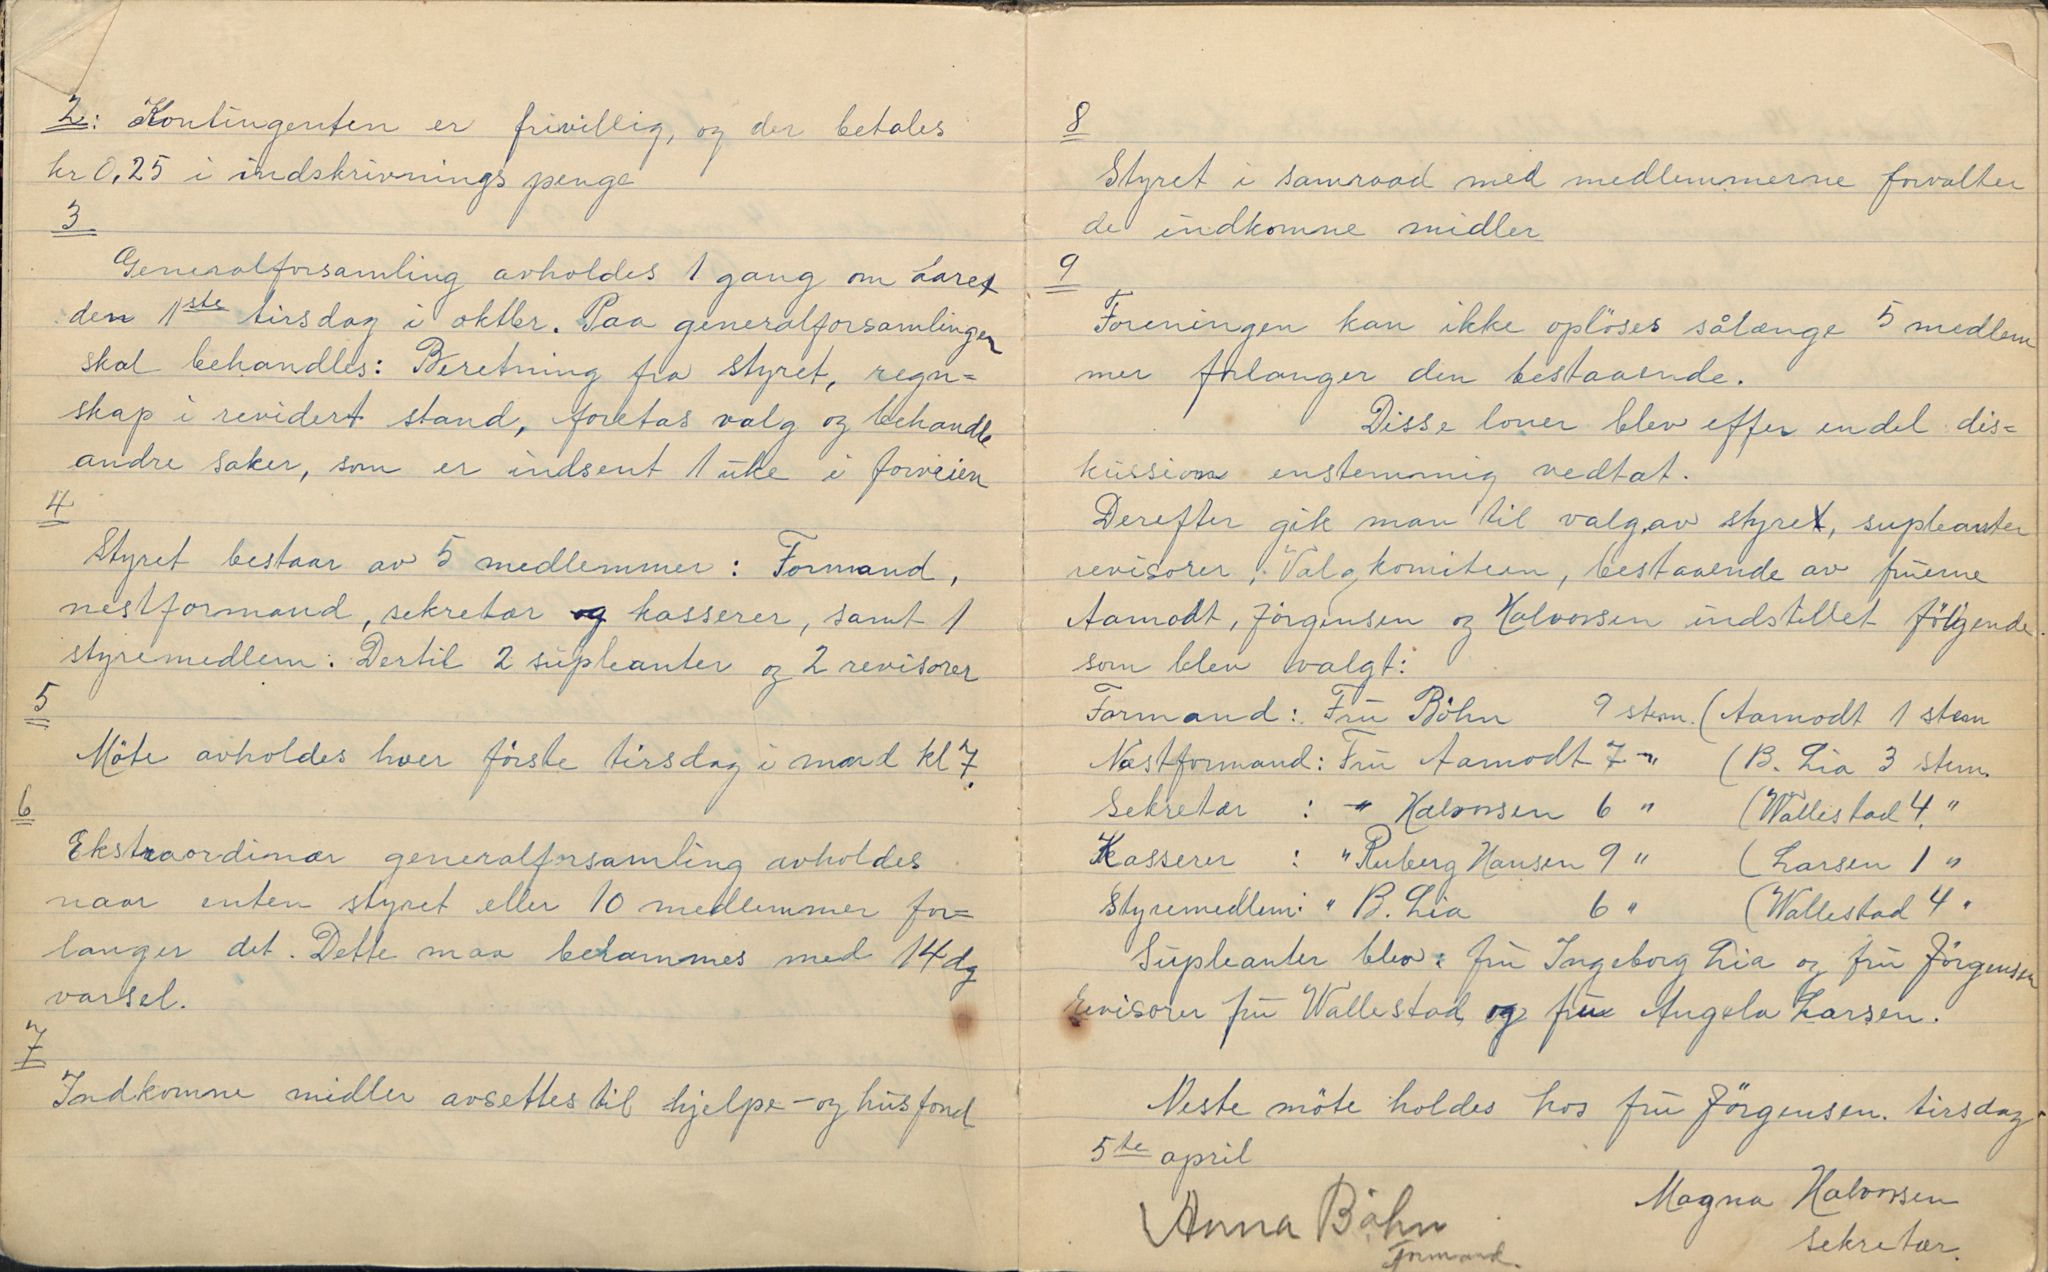 2: Kontingenten er frivillig, og der betales
kr 0,25 i indskrivnings penge
3
Generalforsamling avholdes 1 gang om aaret
den 1ste tirsdag i oktbr. Paa generalforsamlingen
skal behandles: Beretning fra styret, regn=
skap i revidert stand, foretas valg og behandle
andre saker, som er indsent 1 uke i forveien
4
Styret bestaar av 5 medlemmer: Formand,
nestformand, sekretær og kasserer, samt 1
styremedlem. Dertil 2 supleanter og 2 revisorer
5
Möte avholdes hver förste tirsdag i mnd kl 7.
6
Ekstraordinær generalforsamling avholdes
naar enten styret eller 10 medlemmer for=
langer det. Dette maa berammes med 14 dg
varsel.
7
Indkomne midler avsettes til hjelpe- og husfond
8
Styret i samraad med medlemmerne forvalter
de indkomne midler
9
Foreningen kan ikke oplöses sålænge 5 medlem
mer forlanger den bestaaende.
Disse lover blev efter endel dis=
kussion enstemmig vedtat.
Derefter gik man til valg av styret, supleanter
revisorer. Valgkomiteen, bestaaende av fruerne
Aamodt, Jörgensen og Halvorsen indstillet fölgende
som blev valgt:
Formand: Fru Böhn 9 stem. (Aamodt 1 stem
Næstformand: Fru Aamodt 7 " (B. Lia 3 stem.
Sekretær : " Halvorsen 6 " (Wallestad 4 "
Kasserer : " Ruberg Hansen 9 " (Larsen 1 "
Styremedlem: " B. Lia 6 " (Wallestad 4 "
Supleanter blev: fru Ingeborg Lia og fru Jörgensen
Revisorer fru Wallestad og fru Angela Larsen.
Neste möte holdes hos fru Jörgensen. tirsdag
5te april
Magna Halvorsen
Anna Böhn
Sekretær.
Formand.